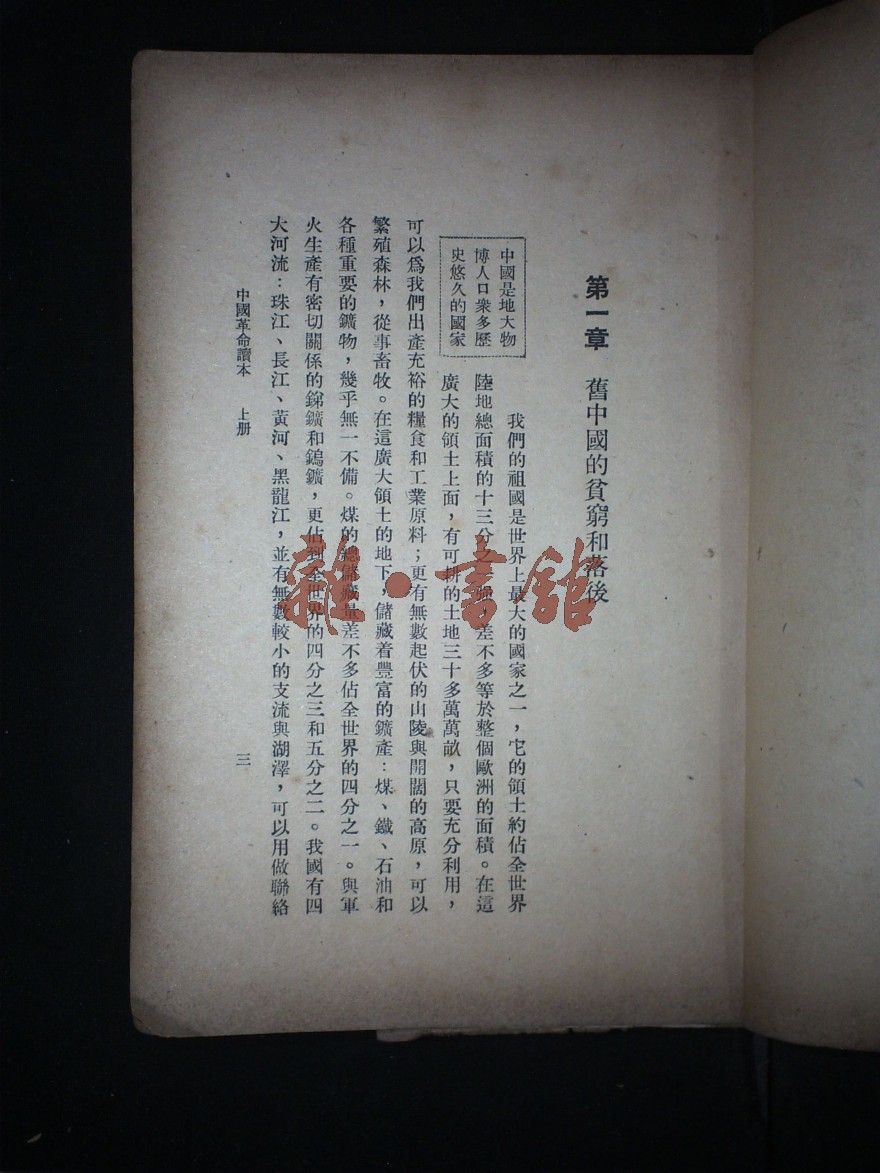 第一章 舊中國的貧窮和落後
中國是地大物
博人口衆多歷
史悠久的國家
我們的祖國是世界上最大的國家之一，它的領土約佔全世界
陸地總面積的十三分之一弱，差不多等於整個歐洲的面積。在這
廣大的領土上面，有可耕的土地三十多萬萬畝，只要充分利用，
可以爲我們出產充裕的糧食和工業原料；更有無數起伏的山陵與開闊的高原，可以
繁殖森林，從事畜牧。在這廣大領土的地下，儲藏着豐富的鑛產：煤、鐵、石油和
各種重要的鑛物，幾乎無一不備。煤的總儲藏量差不多佔全世界的四分之一。與軍
火生產有密切關係的銻鑛和鎢鑛，更佔到全世界的四分之三和五分之二。我國有四
大河流：珠江、長江、黃河、黑龍江，並有無數較小的支流與湖澤，可以用做聯絡
中國革命讀本 上册 三
雜·書館